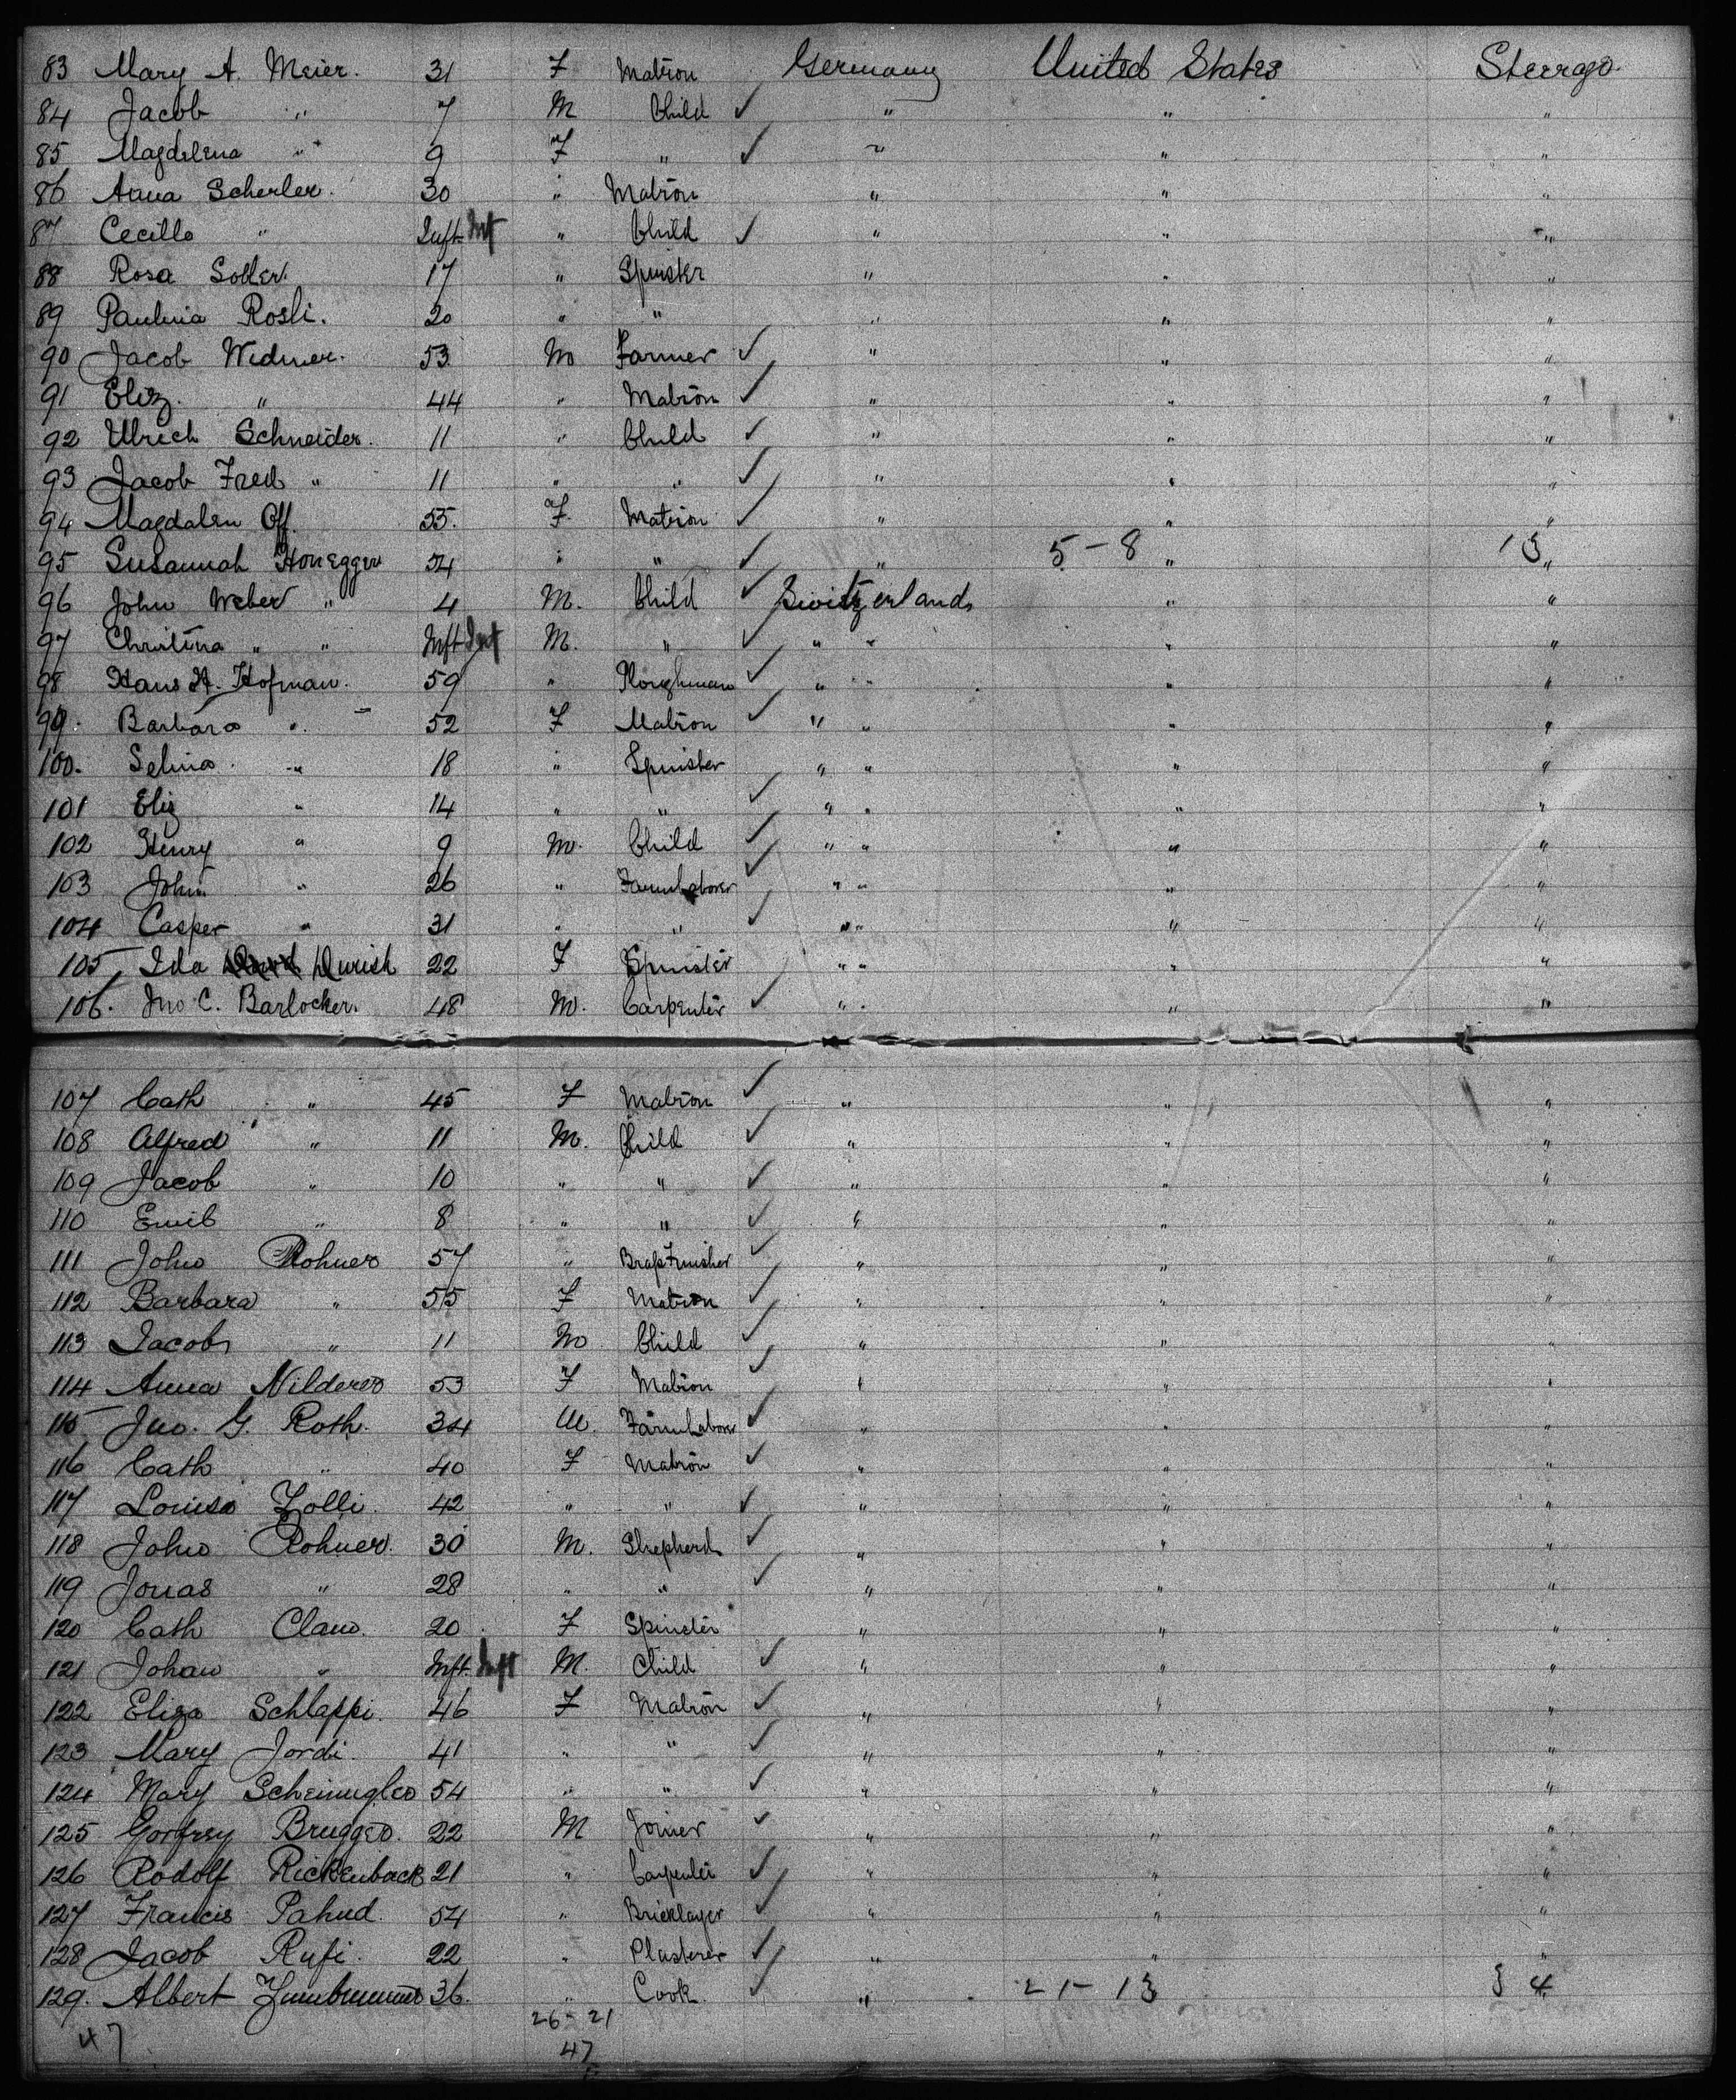 83 Mary A. Meier. 31 F Matron Germany United States Steerage
84 Jacob " 7 M Child ✓ " " "
85 Magdalena " 9 F " ✓ " " "
86 Anna Scherler. 30 " Matron " " "
87 Cecilla " Inft Inft " Child ✓ " " "
88 Rosa Soller. 17 " Spinster " " "
89 Paulina Rosli. 20 " " " " "
90 Jacob Widmer. 53 M Farmer ✓ " " "
91 Eliz. " 44 " Matron ✓ " " "
92 Ulrich Schneider. 11 " Child ✓ " " "
93 Jacob Fred " 11 " " ✓ " " "
94 Magdalen Off. 55. F. Matron ✓ " " "
95 Susannah Honegger 54 " " ✓ " 5-8 " 13 "
96 John Weber " 4 M. Child ✓ Switzerland " "
97 Christina " " Inft Inft M. " ✓ " " " "
98 Hans H. Hofman. 59 " Ploughman ✓ " " " "
99. Barbara " 52 F Matron ✓ " " " "
100. Selina " 18 " Spinster " " " "
101 Eliz " 14 " " ✓ " " " "
102 Henry " 9 M. Child ✓ " " " "
103 John " 26 " Farm Laborer ✓ " " " "
104 Casper " 31 " " ✓ " " " "
105 Ida Durish 22 F Spinster " " " "
106. Jno C. Barlocker. 48 M. Carpenter ✓ " " " "
107 Cath " 45 F Matron ✓ " " "
108 Alfred " 11 M. Child ✓ " " "
109 Jacob " 10 " " ✓ " " "
110 Emil " 8 " " ✓ " " "
111 John Rohner 57 " Brass Finisher ✓ " " "
112 Barbara " 55 F Matron ✓ " " "
113 Jacob " 11 M Child ✓ " " "
114 Anna Nilderer 53 F Matron ✓ " " "
115 Jno. G. Roth. 34 M. Farm Laborer ✓ " " "
116 Cath " 40 F Matron ✓ " " "
117 Louisa Zolli. 42 " " ✓ " " "
118 John Rohner. 30 M. Shepherd ✓ " " "
119 Jonas " 28 " " ✓ " " "
120 Cath Claus. 20 F Spinster " " "
121 Johan " Inft. Inft M. Child ✓ " " "
122 Eliza Schlappi. 46 F Matron ✓ " " "
123 Mary Jordi. 41 " " ✓ " " "
124 Mary 54 " " ✓ " " "
125 Gorfrey Brugger. 22 M Joiner ✓ " " "
126 Rodolf Rickenback 21 " Carpenter ✓ " " "
127 Francis Pahud. 54 " Bricklayer ✓ " " "
128 Jacob Rufi. 22 " Plasterer ✓ " " "
129. Albert 36. " Cook. ✓ " 21-13 4
26-21
47 47